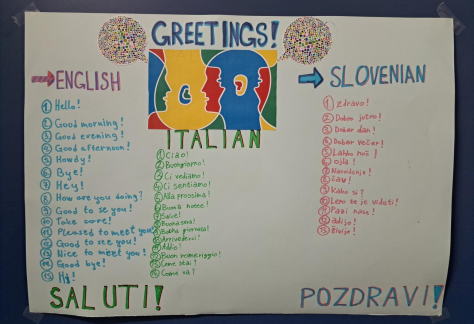 GREETINGS!
ENGLISH
1 Hello!
2 Good morning!
3 Good evening!
4 Good afternoon!
5 Howdy!
6 Bye!
7 Hey!
8 How are you doing?
9 Good to se you!
10 Take care!
11 Pleased to meet you!
12 Good to see you!
13 Nice to meet you!
14 Good bye!
15 Hi!
ITALIAN
1 Ciao!
2 Buongiorno!
3 Ci vediamo!
4 Ci sentiamo!
5 Alla prossima!
6 Buona notte!
7 Salve!
8 Buonasera!
9 Buona giornata!
10 Arrivederci!
11 Addio!
12 Buon pomeriggio!
13 Come stai?
14 Come va?
SLOVENIAN
1 Zdravo!
2 Dobro jutro!
3 Dober dan!
4 Dober večer!
5 Lahko noč!
6 Ojla!
7 Nasvidenje!
8 Čav!
9 Kako si?
10 Lepo te je videti!
11 Pazi nase!
12 Adijo!
13 Živijo!
SALUTI!
POZDRAVI!